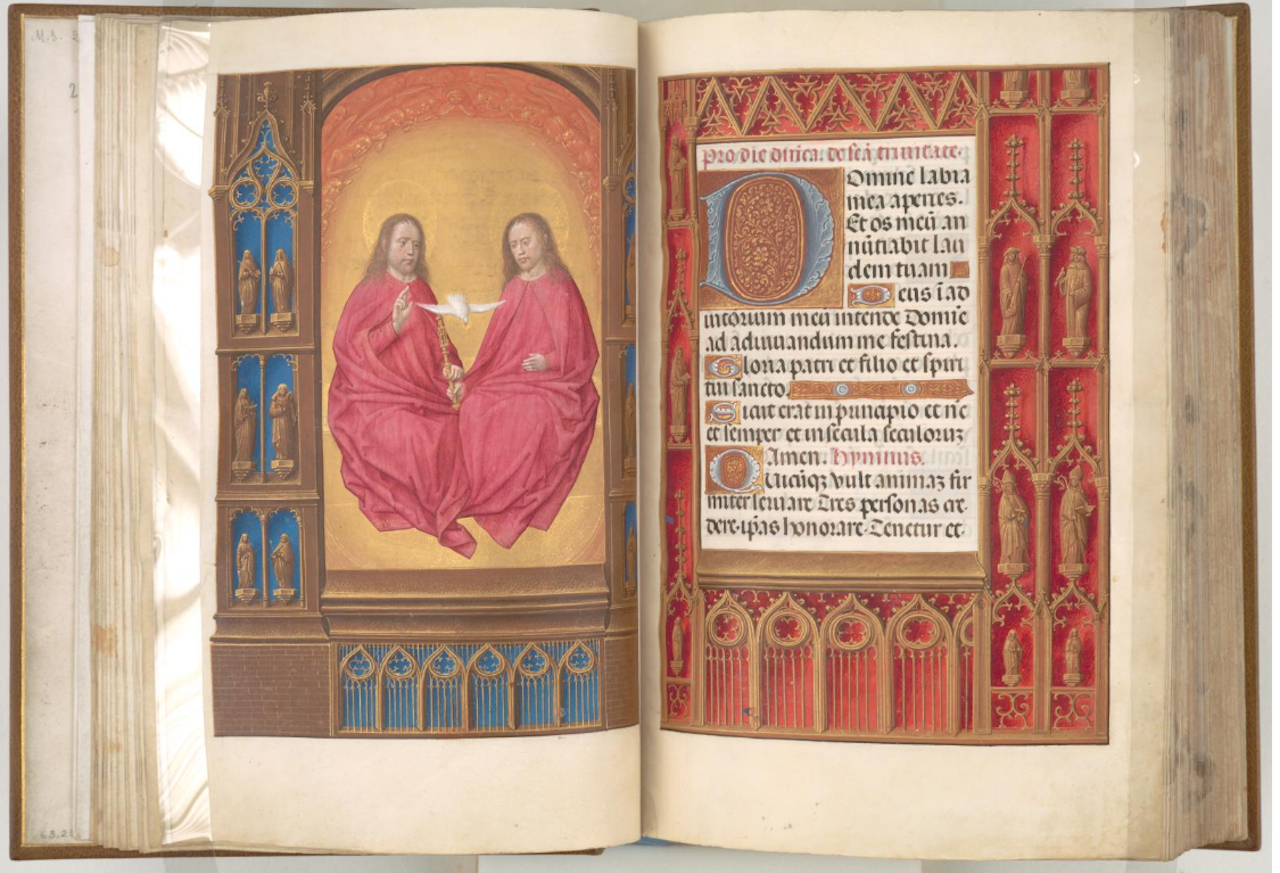 M.S. 2
2
63.25
Pro die dnica. de scā trinitate.
Domine labia
mea aperies.
Et os meū an
nūtiabit lau
dem tuam
Deus ī ad
iutorium meū intende Domīe
ad adiuuandum me festina.
Gloria patri et filio et spiri
tui sancto.
Sicut erat in principio et nūc
et semper et in secula seculorūz
Amen. Hymnus.
Quicūqz vult animaz fir
miter seruare Tres personas cre
dere ip̄as honorare Tenetur et